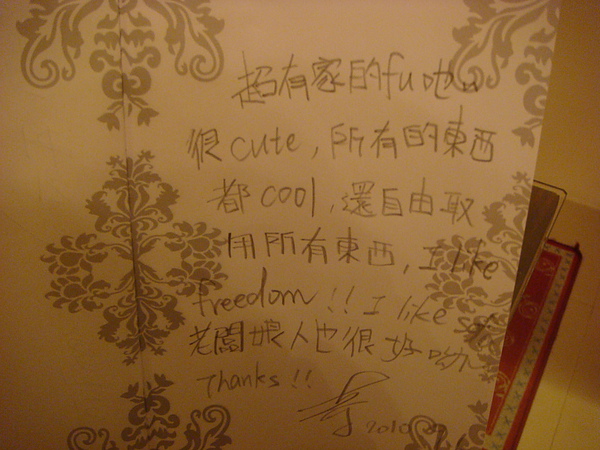 超有家的fu吔~
很cute,所有的東西
都cool,還自由取
用所有東西,I like
freedom!!I like
老闆娘人也很好呦~
Thanks!!
2010